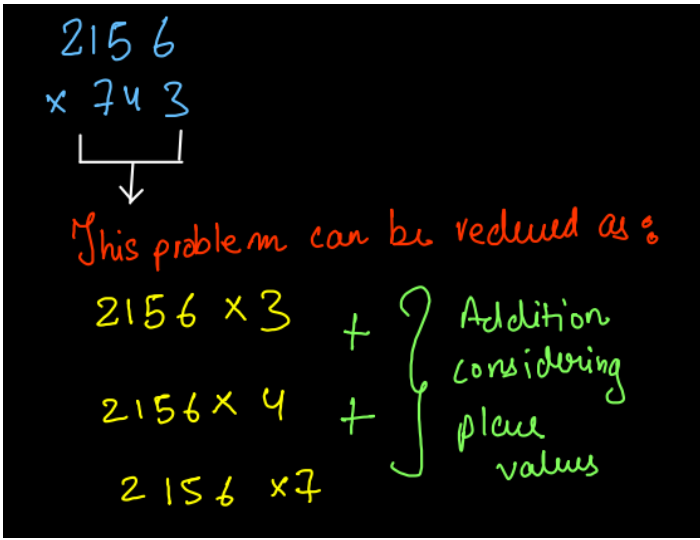 2156
× 743
This problem can be reduced as:
2156 × 3 +
2156 × 4 +
2156 × 7
Addition
considering
place
values